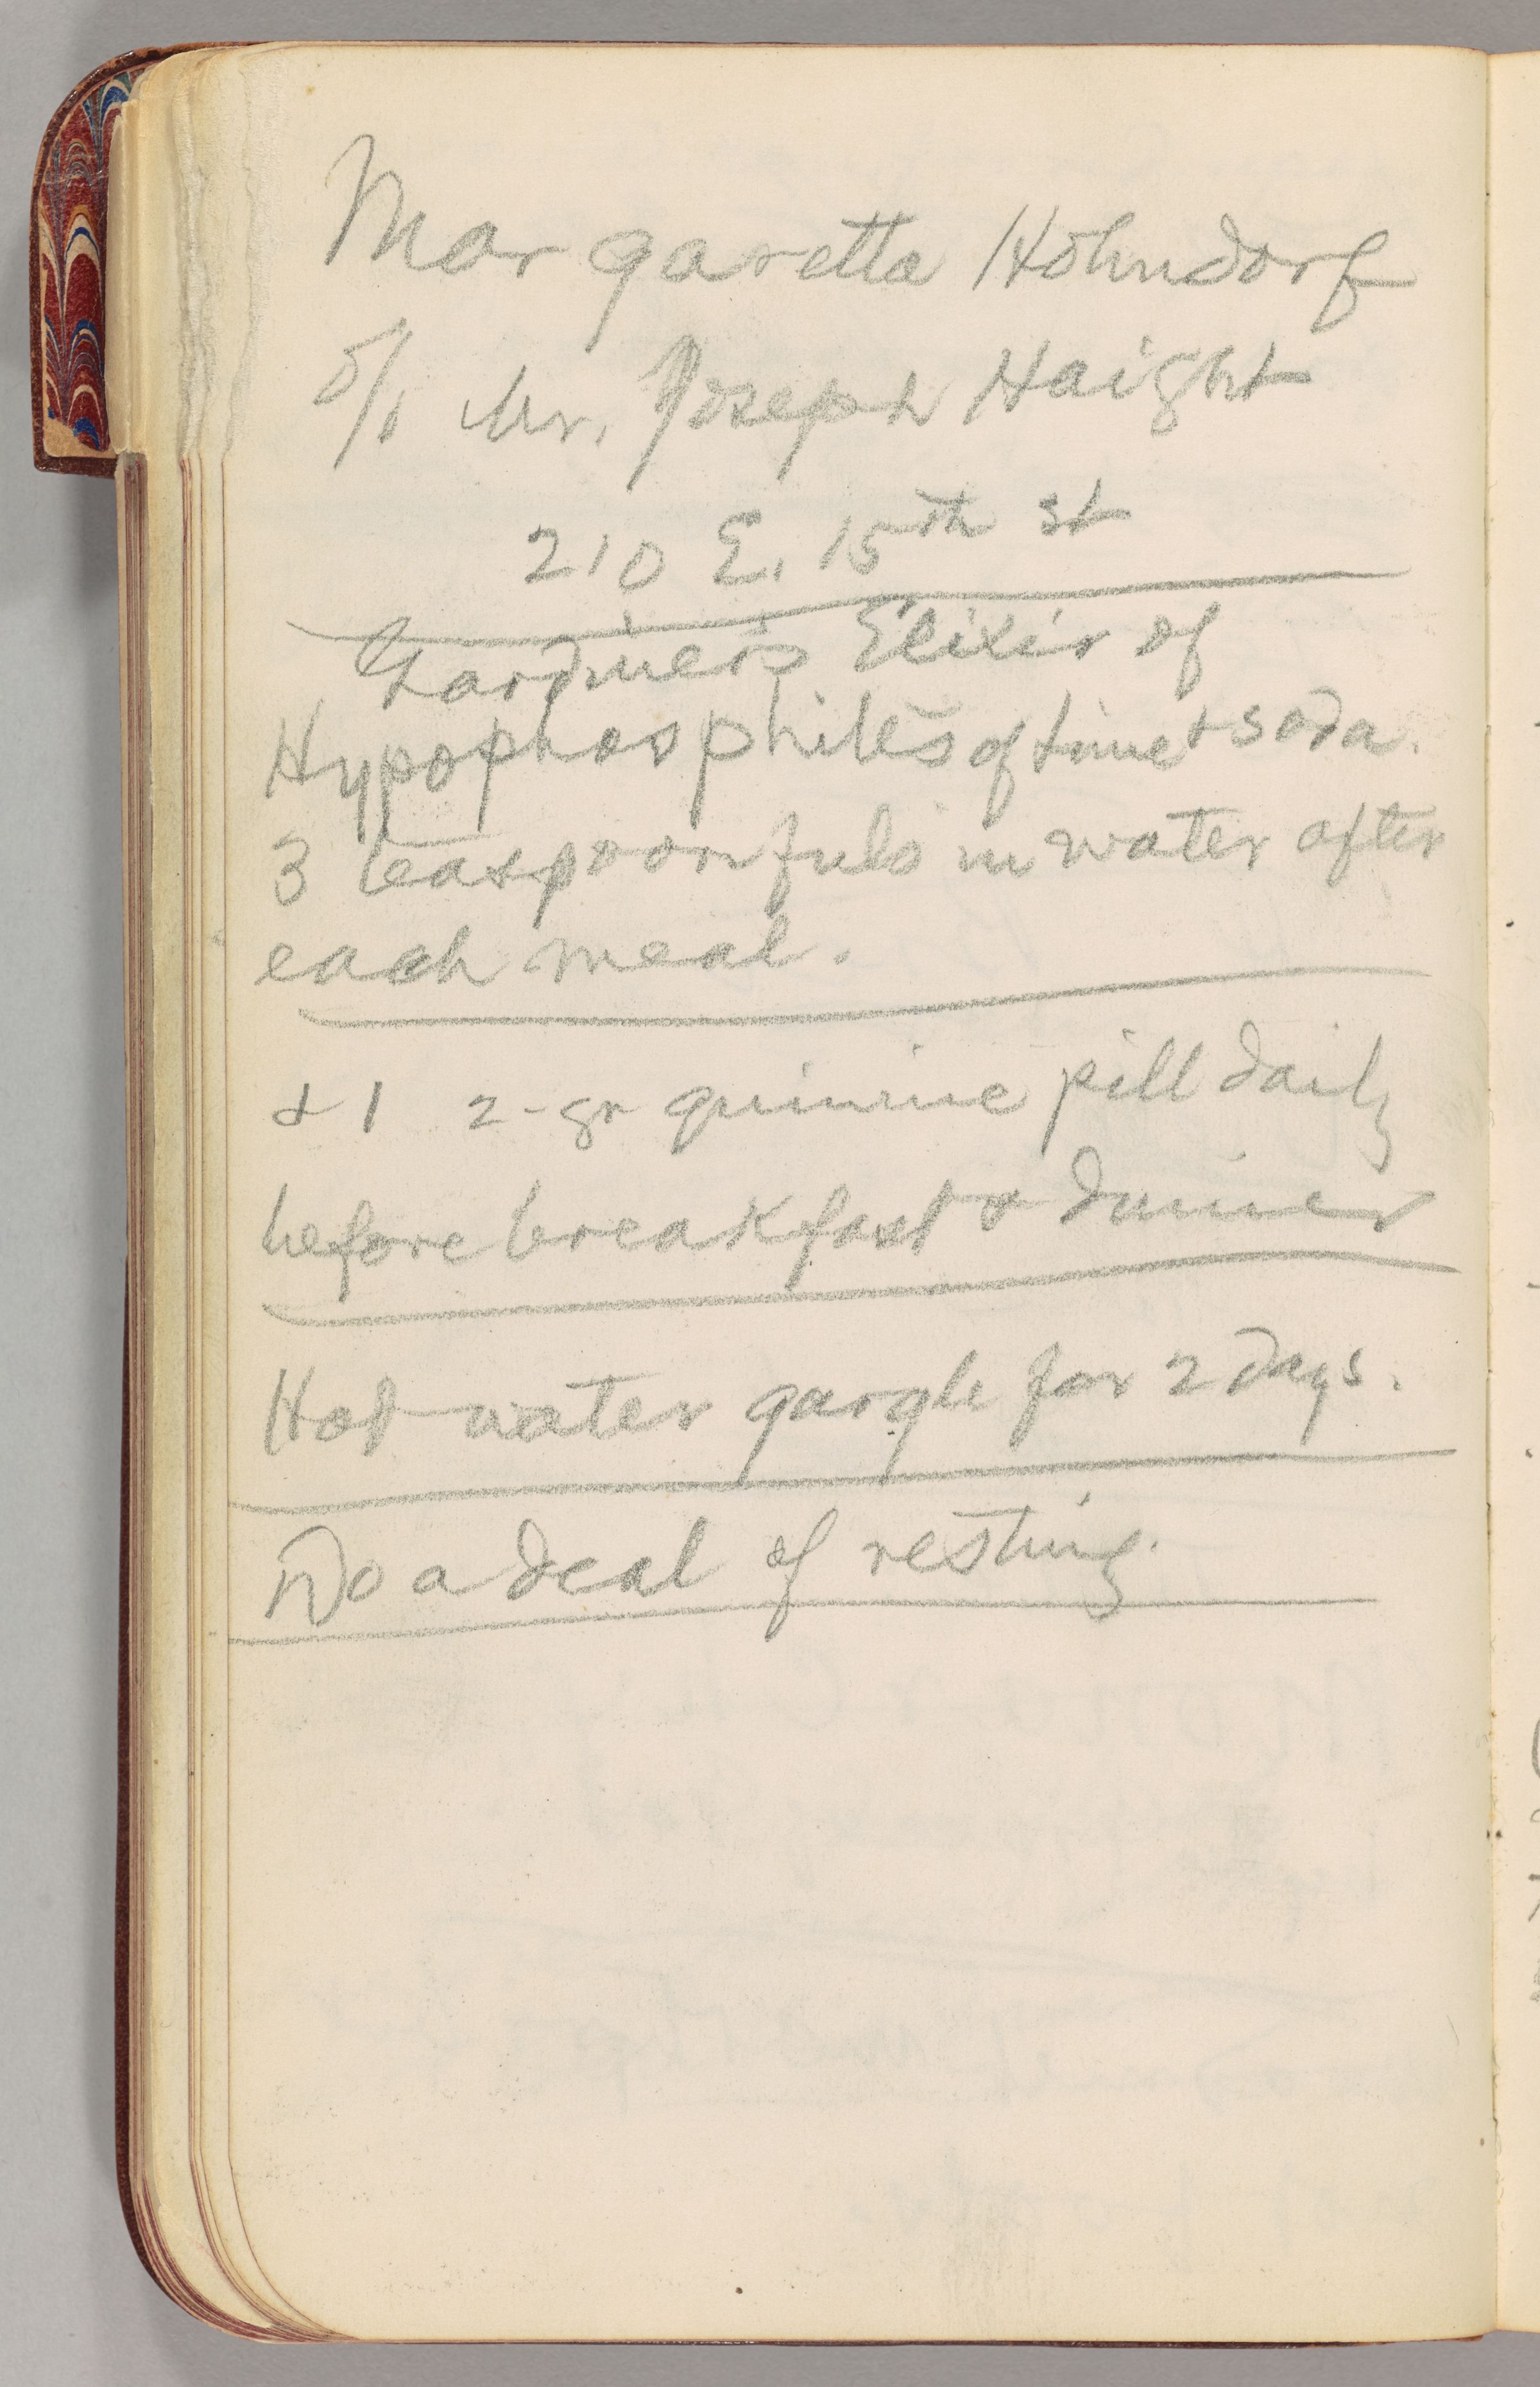 Margaretta Höhndorf
c/o Mr. Joseph Haight
210 E. 15th st
Gardner's Elixir of
Hypophosphites of Lime & soda.
3 teaspoonfuls in water after
each meal.
& 1 2-gr quinine pill daily
before breakfast & dinner
Hot water gargle for 2 days.
Do a deal of resting.